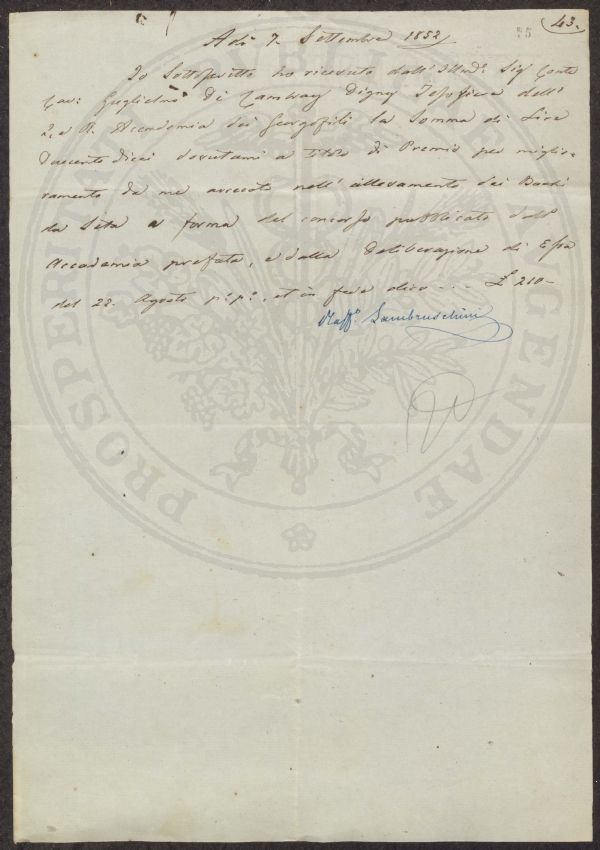 43.
55
Adì 7. Settembre 1852
Io Sottoscritto ho ricevuto dall' Illmo. Sigr. Conte
Cav: Guglielmo De Cambray Digny Tesoriere dell'
I. e R. Accademia dei Georgofili la Somma di Lire
Duecento dieci dovutami a titolo di Premio per miglio-
ramento da me arrecato nell' allevamento dei Bachi
da Seta a forma del concorso pubblicato dall'
Accademia prefata, e dalla deliberazione di Essa
del 22. Agosto p.º p.º, et in fede dico - - - £ 210 -
Raff.º Lambruschini
PROSPERITATI PUBLICAE AUGENDAE